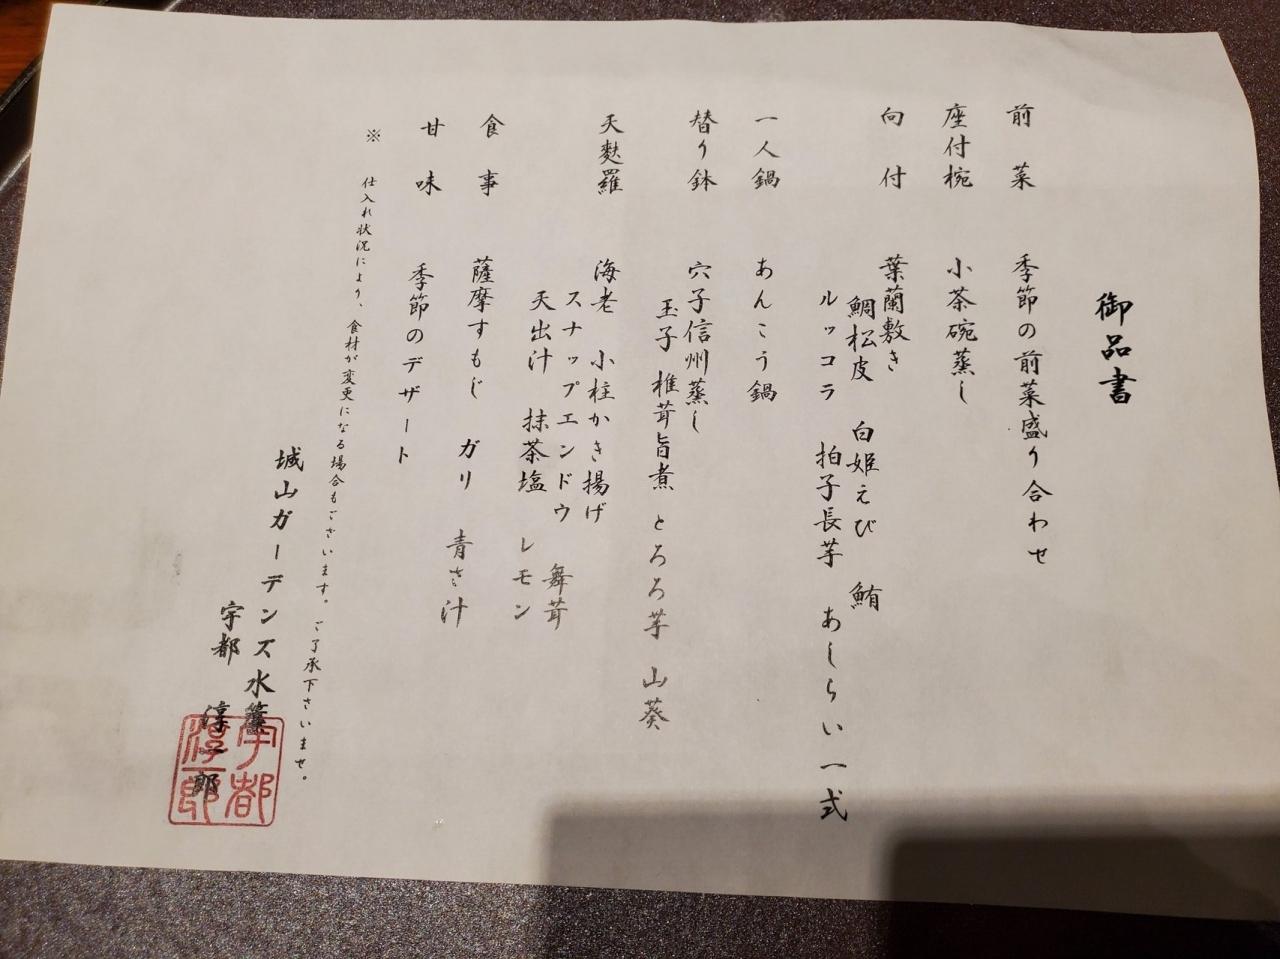 御品書
前菜　季節の前菜盛り合わせ
座付椀　小茶碗蒸し
向付　葉蘭敷き
鯛松皮　白姫えび　鮪
ルッコラ　拍子長芋　あしらい一式
一人鍋　あんこう鍋
替り鉢　穴子信州蒸し
玉子　椎茸旨煮　とろろ芋　山葵
天麩羅　海老　小柱かき揚げ
スナップエンドウ　舞茸
天出汁　抹茶塩　レモン
食事　薩摩すもじ　ガリ　青さ汁
甘味　季節のデザート
※　仕入れ状況により、食材が変更になる場合もございます。ご了承下さいませ。
城山ガーデンズ水簾
宇都　淳一郎
宇都
淳一郎